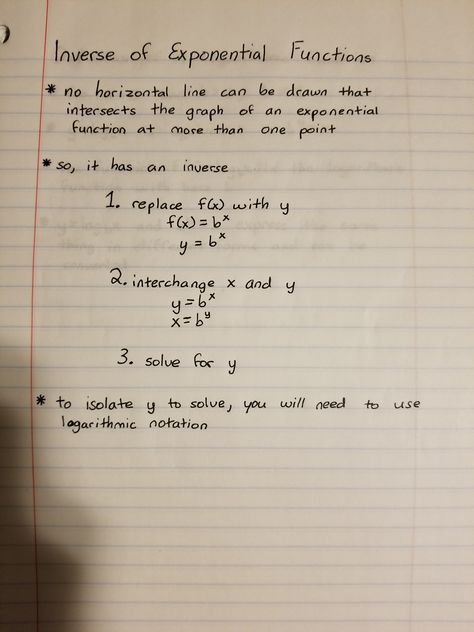 Inverse of Exponential Functions
* no horizontal line can be drawn that
intersects the graph of an exponential
function at more than one point
* so, it has an inverse
1. replace f(x) with y
f(x) = b^x
y = b^x
2. interchange x and y
y = b^x
x = b^y
3. solve for y
* to isolate y to solve, you will need to use
logarithmic notation